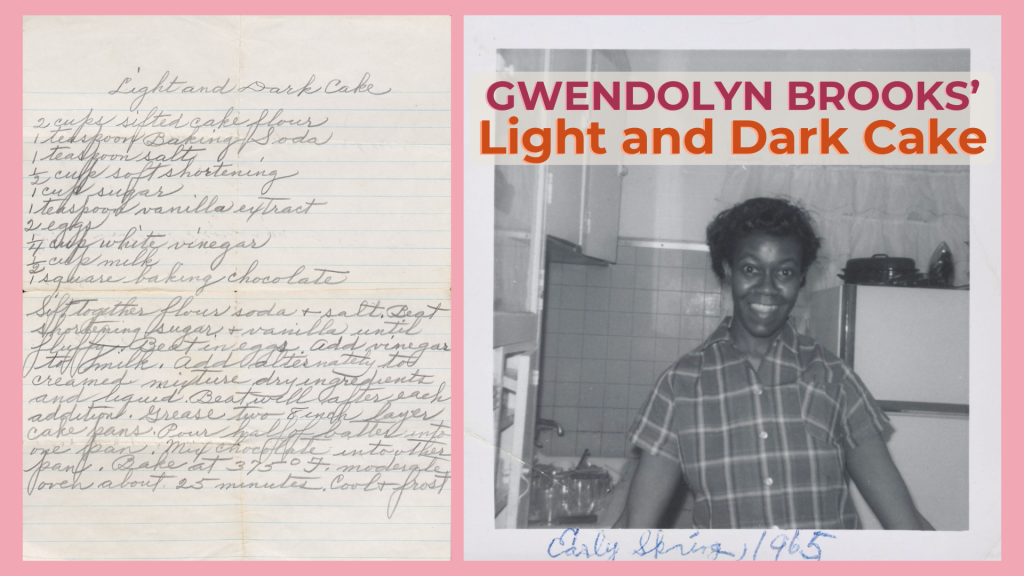 Light and Dark Cake
2 cups sifted cake flour
1 teaspoon Baking Soda
1 teaspoon salt
1/2 cup soft shortening
1 cup sugar
1 teaspoon vanilla extract
2 eggs
1/4 cup white vinegar
1/2 cup milk
1 square baking chocolate
Sift together flour soda + salt. Beat
shortening sugar + vanilla until
fluffy. Beat in eggs. Add vinegar
to milk. Add alternately to
creamed mixture dry ingredients
and liquid. Beat well after each
addition. Grease two 8 inch layer
cake pans. Pour half of batter into
one pan. Mix chocolate into other
pan. Bake at 375° F. moderate
oven about 25 minutes. Cool + frost
GWENDOLYN BROOKS’
Light and Dark Cake
Early Spring, 1965